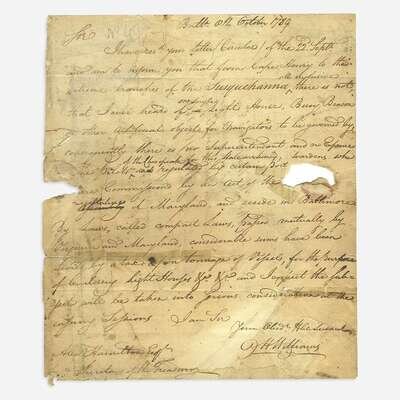 Balt 8th October 1789
Sir
I have rec'd your letter (Circular) of the 22 Sept
and am to inform you that from Cape Henry to the
extreme branches of the Susquehanna there is not
that I ever heard of a Light House, Buoy, Beacon
or other Artificial objects for Navigators to be governed by
consequently there is no Superintendants and no Expence
The are regulated by certain
are Commissioned by an act of the
of Maryland and reside in Baltimore
By Laws, called compact Laws, passed mutually by
Virginia and Maryland, considerable sums have been
by a tax on tonnage of Vessels, for the purpose
of Light Houses &c &c and I expect the sub-
ject will be taken into serious consideration at the
ensuing Sessions I am Sir
Your Obedt Hble Servant
O H Williams
Alex Hamilton Esqr
Secretary of the Treasury